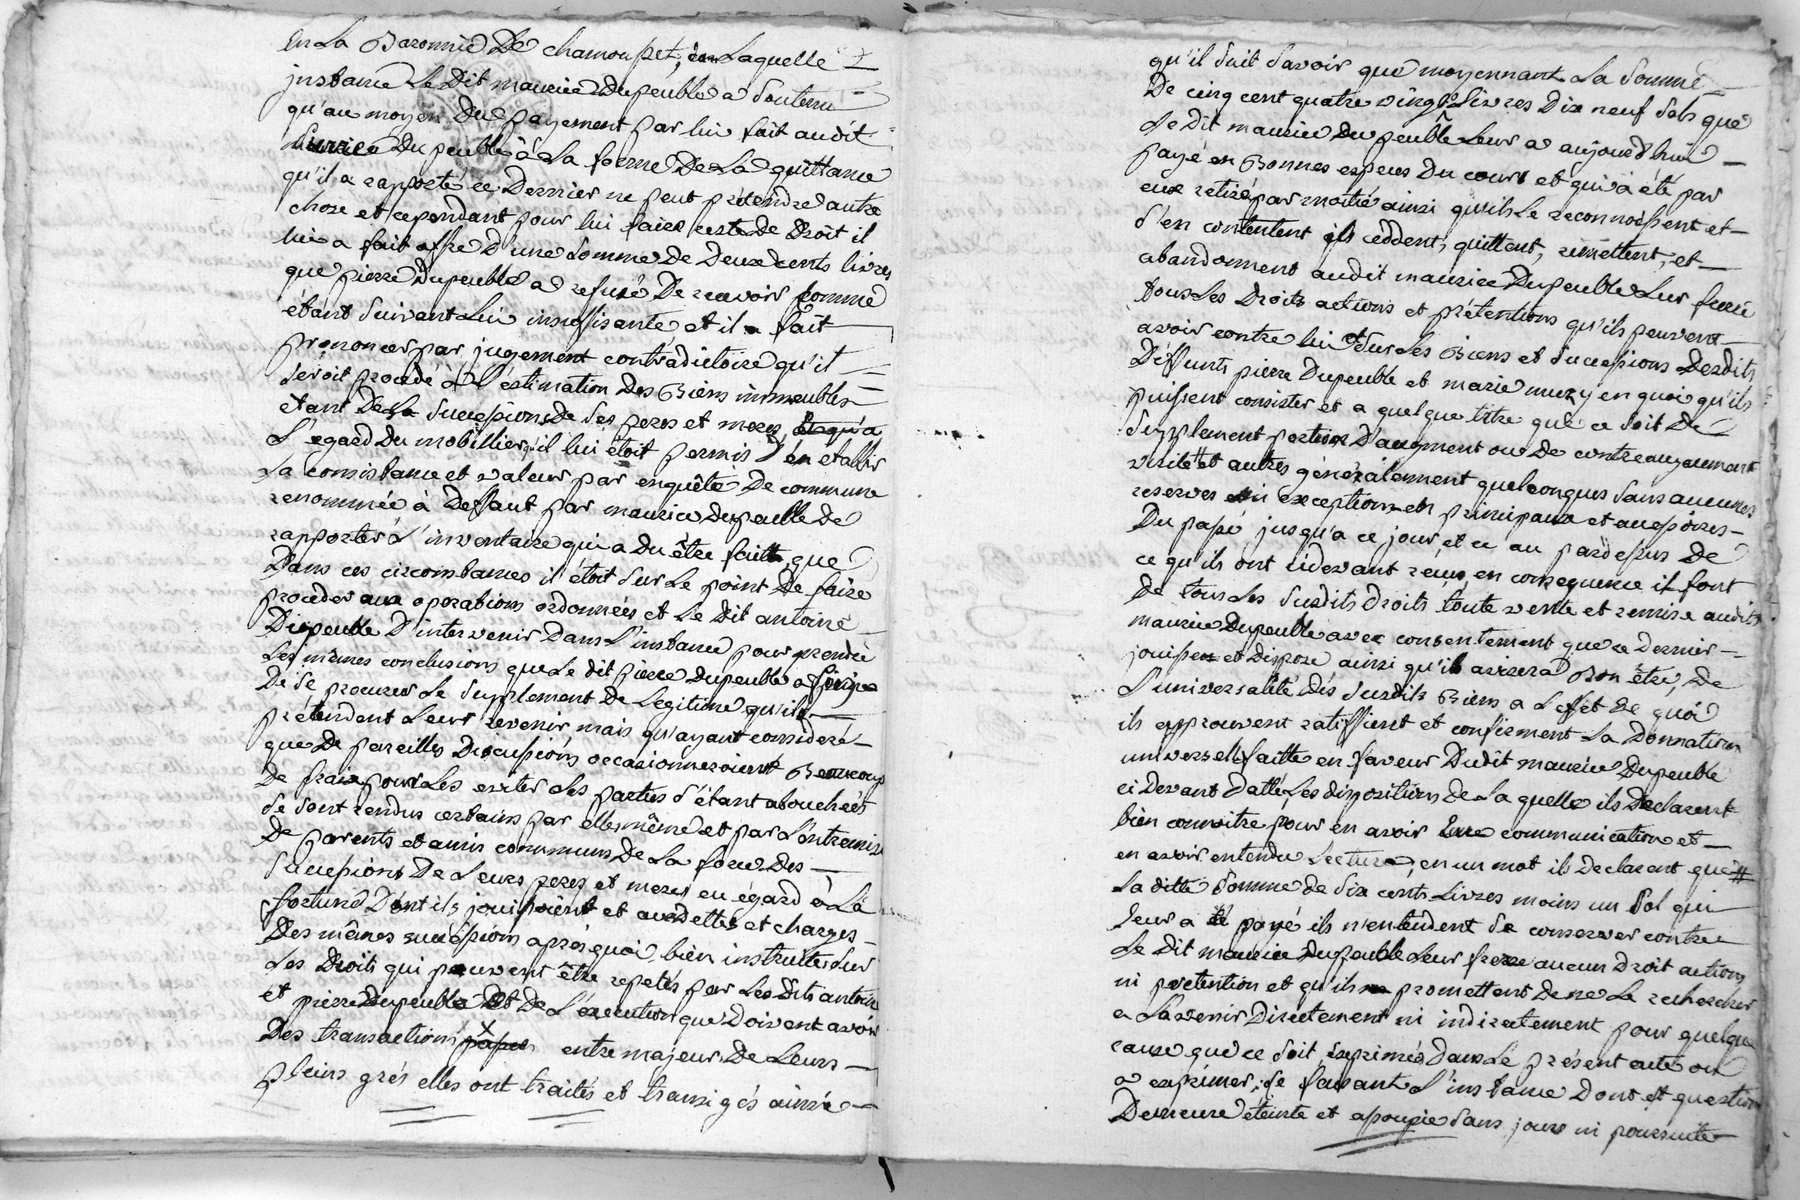 en La Baronnie De chamousset, en Laquelle
instance Le Dit maurice Dupeuble a Soutenu
qu'au moyen Du payement par lui fait audit
Du peuble à La forme De La quittance
qu'il a rapporté ce Dernier ne peut prétendre autre
chose et cependant pour lui faire reste De Droit il
lui a fait offre D'une Somme De Deux cents livres
que pierre Dupeuble a refusé De recevoir comme
étant Suivant Lui insuffisante et il a fait
prononcer par jugement contradictoire qu'il
Seroit procédé à L'éstimation Des Biens immeubles
étant De La Succession De Ses peres et meres
L'egard Du mobillier qu'il lui étoit permis D'en etablir
La consistance et valeur par enquête De commune
renommée à Deffaut par maurice Dupeuble De
rapporter L'inventaire qui a Du être faitte, que
Dans ces circonstances il étoit Sur Le point De faire
proceder aux operations ordonnées et Le Dit antoine
Dupeuble D'intervenir Dans L'instance pour prendre
Les mêmes conclusions que Le dit pierre Dupeuble
De Se procurer Le Supplement De Legitime qu'ils
prétendent Leurs revenir, mais qu'ayant consideré
que De pareilles Discussions occasionneroient Beaucoup
De frais pour Les eviter Les parties S'étant abouchées
Se Sont rendus certains par elles même et par L'intremise
De parents et amis communs De La force Des
Successions De Leurs peres et meres eu égard à La
fortune Dont ils jouissoient et aux dettes et charges
Des mêmes successions après quoi bien instruites Sur
Les Droits qui peuvent être repetés par Les Dits antoine
et pierre Dupeuble et De L'éxecution que Doivent avoir
Des transactions entre majeur De Leurs
pleins grés elles ont traités et transigés ainsi
qu'il Suit Savoir que moyennant La Somme
De cinq cent quatre vingt Livres Dix neuf Sols que
Le Dit maurice Du peuble Leur a aujourd'hui
payé en Bonnes especes Du cours et qui a été par
eux retiré par moitié ainsi qu'ils Le reconnoissent et
S'en contentent ils cèddent, quittent, remettent, et
abandonnent audit maurice Dupeuble Leur frere
tous Les Droits actions et prétentions qu'ils peuvent
avoir contre lui et Sur Les Biens et Successions Desdits
Deffunts pierre Dupeuble et marie muzy en quoi qu'ils
puissent consister et a quelque titre que ce Soit De
Supplement portion D'augment ou De contreaugment
virile et autres générallement quelconques Sans aucunes
reserves ni exceptions en principaux et accessoires
Du passé jusqu'a ce jour, et ce au pardessus De
ce qu'ils ont cidevant reçus, en consequence il font
De tous Les Susdits Droits toute vente et remise audit
maurice Dupeuble avec consentement que ce Dernier
jouisse et Dispose ainsi qu'il avisera Bon être, De
L'universalité Des Susdits Biens a L'effet De quoi
ils approuvent ratiffient et confirment La Donnation
universelle faitte en faveur Dudit maurice Dupeuble
ci Devant Datté, Les dispositions De La quelle ils Declarent
bien connoitre pour en avoir eue communication et
en avoir entendu Lecture, en un mot il Declarent que
La ditte Somme de Six cents Livres moins un Sol qui
leur a été payé ils n'entendent Se conserver contre
Le Dit maurice Dupeuble Leur frere aucun Droit action
ni pretention et qu'ils promettent De ne Le rechercher
a L'avenir Directement ni indirectement pour quelque
cause que ce Soit Exprimés Dans Le présent acte ou
a exprimer, Se faisant L'instance Dont est question
Demeure éteinte et assoupie Sans jours ni poursuite